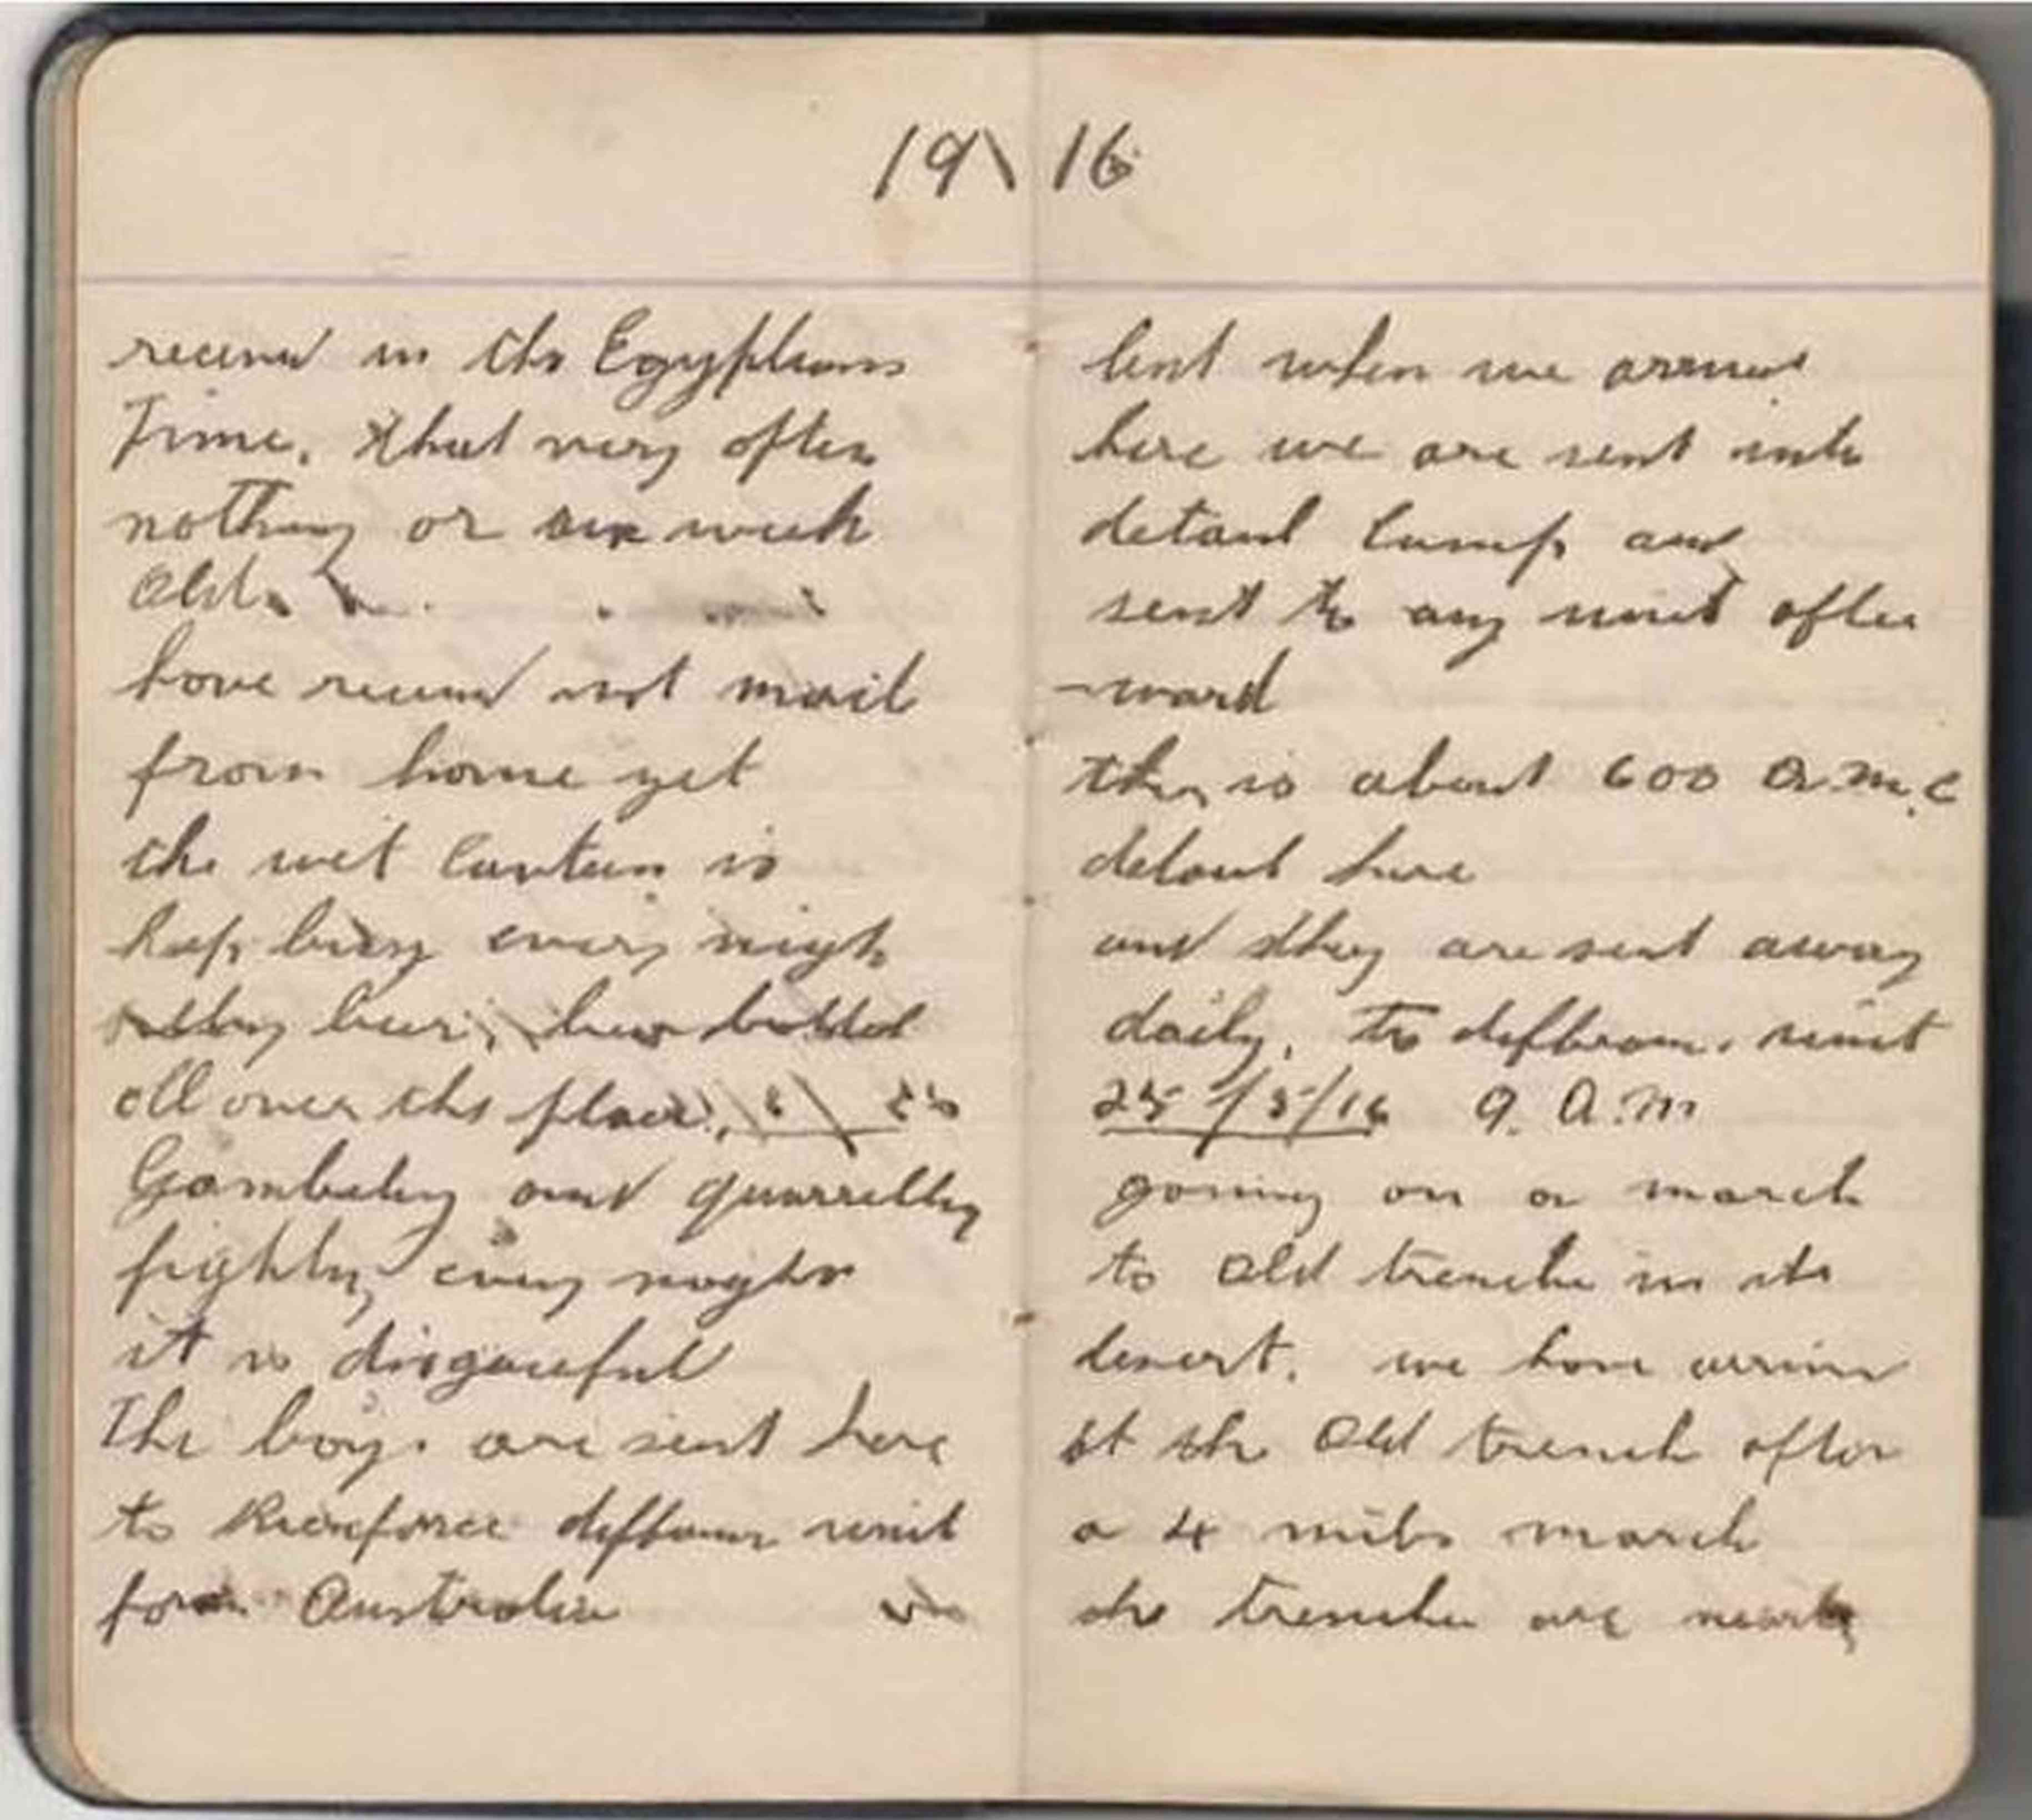 19\16
received in the Egyptians
Time. that very often
nothing or six week
old.
have received not mail
from home yet
the wet Canteen is
kep busy every nigh
beer, beer bottled
all over the place.
Gambeling and quarrelling
fighting every night
it is disgraceful
The boys. are sent here
to Reinforce unit
from Australia
but when we arrived
here we are sent into
detail Camp and
sent to any unit after
-ward
ther is about 600 A.M.C
detail here
and they are sent away
daily. to unit
25/5/16 9. A.M
going on a march
to old trenche in the
desert. we have arrive
at the old trench after
a 4 miles march
the trenche are nearly